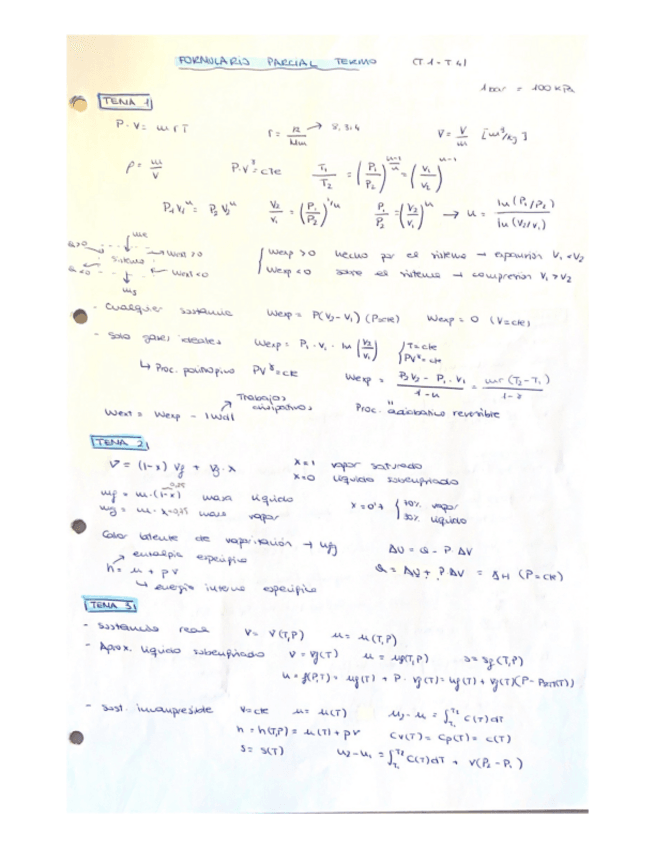 FORMULARIO PARCIAL TERMO (T1-T4)
1 bar = 100 kPa
TEMA 1
P·V = m r T r = R/Mm → 8,314 v = V/m [m³/kg]
ρ = m/V P·V^γ = cte T1/T2 = (P1/P2)^(n-1/n) = (V1/V2)^n-1
P1 V1^n = P2 V2^n V2/V1 = (P1/P2)^1/n P1/P2 = (V2/V1)^n → n = ln(P1/P2)/ln(V2/V1)
me
Q>0 Wext>0 Wexp>0 hecho por el sistema → expansión V1<V2
Sistema
Q<0 Wext<0 Wexp<0 sobre el sistema → compresión V1>V2
ms
- Cualquier sustancia Wexp = P(V2-V1) (P=cte) Wexp = 0 (V=cte)
- Solo gases ideales Wexp = P1·V1·ln(V2/V1) { T=cte
PV^γ=cte
↳ Proc. politrópico PV^γ=cte Wexp = P2V2 - P1·V1 / 1-n = mr(T2-T1) / 1-γ
Trabajos disipativos
Wext = Wexp - |Wd| Proc. adiabático reversible
TEMA 2
v = (1-x) vf + vg·x x=1 vapor saturado
x=0 líquido subenfriado
mf = m·(1-x) masa líquido
mg = m· masa vapor
vapor
líquido
Calor latente de vaporización →
ΔU = Q - P ΔV
entalpía específica
h = u + pv Q = ΔU + PΔV = ΔH (P=cte)
↳ energía interna específica
TEMA 3
- Sustancia real v = v(T,P) u = u(T,P)
- Aprox. líquido subenfriado v = vf(T) u = uf(T,P) s = sf(T,P)
- Sust. incompresible v=cte u = u(T) u2-u1 = ∫T1 T2 C(T)dT
h = h(T,P) = u(T) + pv Cv(T) = Cp(T) = c(T)
s = s(T) = ∫T1 T2 C(T)dT + v(P2-P1)